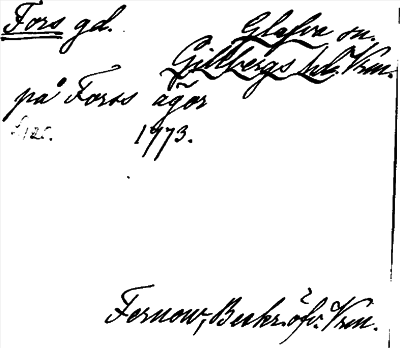 Fors gd. Glafva sn.
Gillbergs hd. Vrm.
på Fors ägor
s. 125. 1773.
Fernow, Beskr. öfv. Vrm.